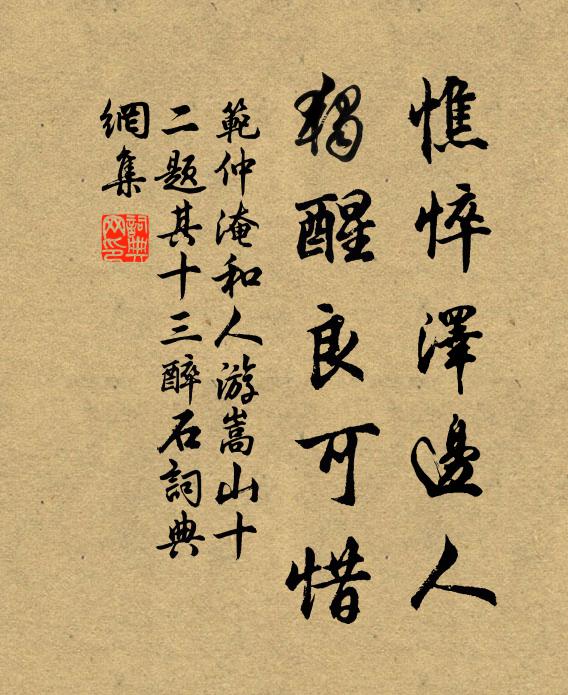 憔悴澤邊人
獨醒良可惜
範仲淹和人游嵩山十
二題其十三醉石詞典
網集
詞典
网印